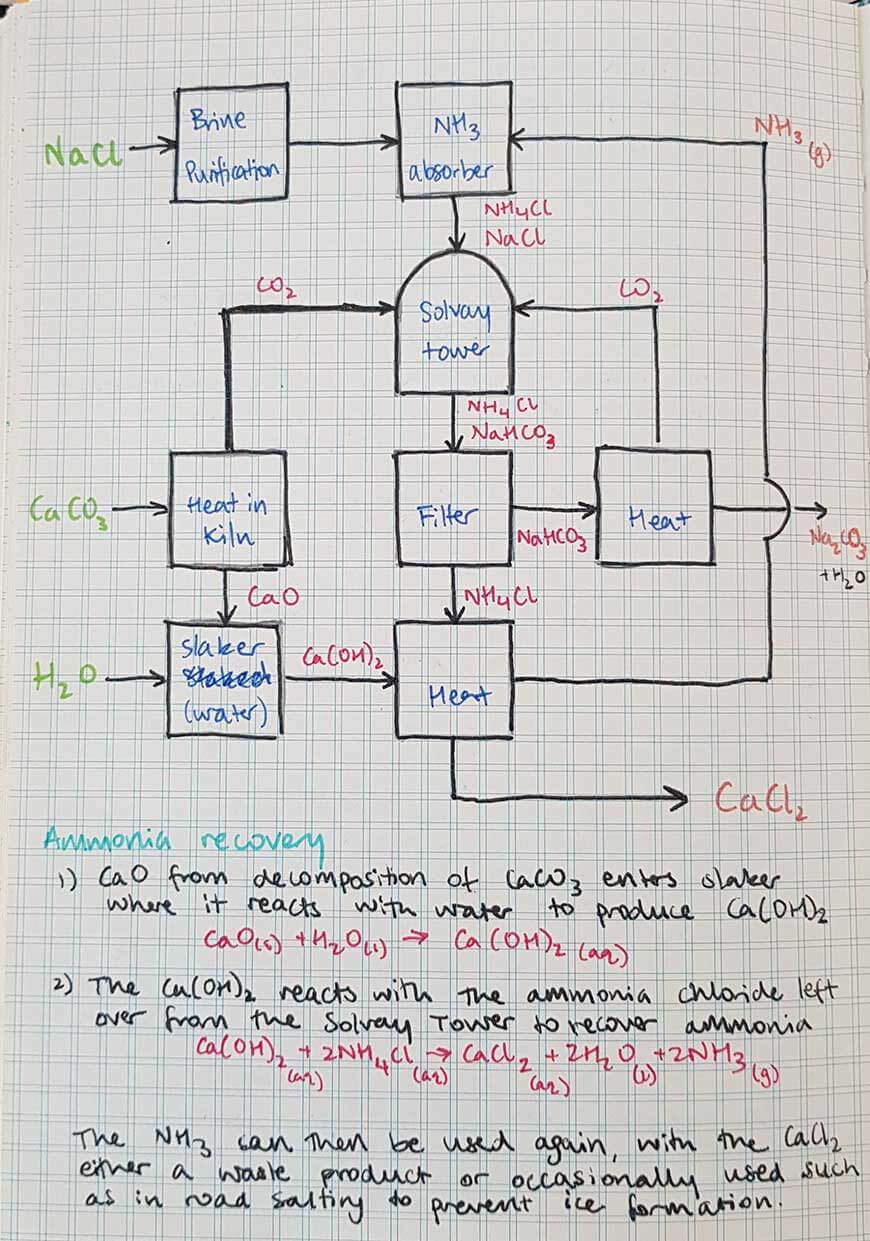 NaCl
Brine
Purification
NH₃
absorber
NH₃ (g)
NH₄Cl
NaCl
CO₂
Solvay
tower
CO₂
NH₄Cl
NaHCO₃
CaCO₃
Heat in
Kiln
Filter
NaHCO₃
Heat
Na₂CO₃
+H₂O
CaO
NH₄Cl
H₂O
slaker
(water)
Ca(OH)₂
Heat
CaCl₂
Ammonia recovery
1) CaO from decomposition of CaCO₃ enters slaker
where it reacts with water to produce Ca(OH)₂
CaO(s) + H₂O(l) → Ca(OH)₂ (aq)
2) The Ca(OH)₂ reacts with the ammonia chloride left
over from the Solvay Tower to recover ammonia
Ca(OH)₂ (aq) + 2NH₄Cl (aq) → CaCl₂ (aq) + 2H₂O (l) + 2NH₃ (g)
The NH₃ can then be used again, with the CaCl₂
either a waste product or occasionally used such
as in road salting to prevent ice formation.